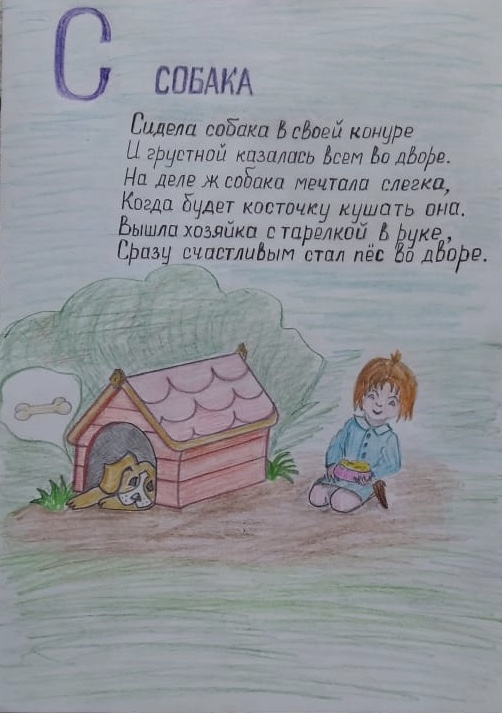 С
СОБАКА
Сидела собака в своей конуре
И грустной казалась всем во дворе.
На деле ж собака мечтала слегка,
Когда будет косточку кушать она.
Вышла хозяйка с тарелкой в руке,
Сразу счастливым стал пёс во дворе.